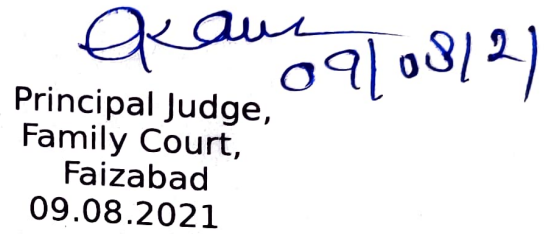 09/08/21
Principal Judge,
Family Court,
Faizabad
09.08.2021